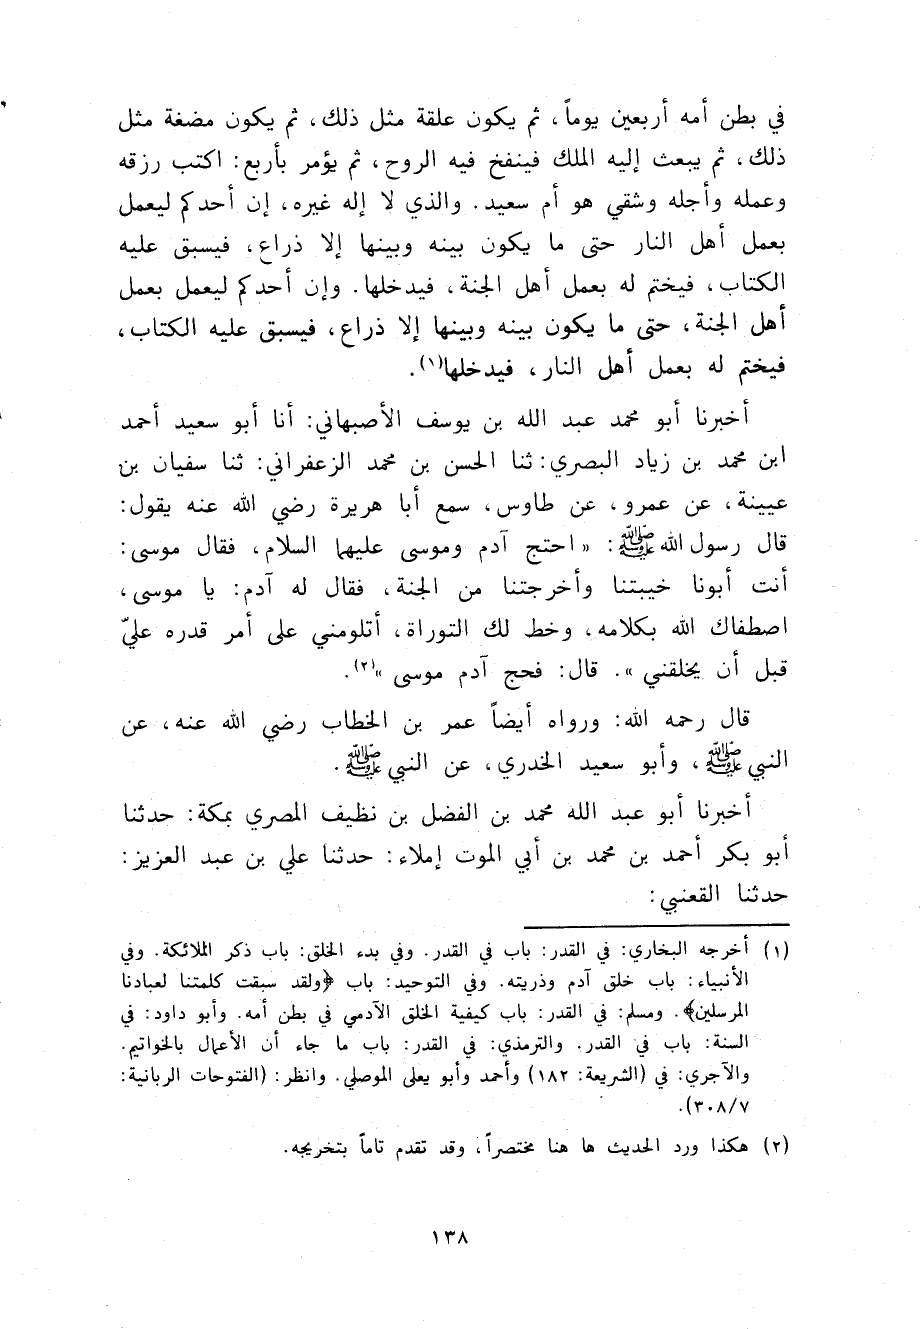 في بطن أمه أربعين يوماً، ثم يكون علقة مثل ذلك، ثم يكون مضغة مثل
ذلك، ثم يبعث إليه الملك فينفخ فيه الروح، ثم يؤمر بأربع: اكتب رزقه
وعمله وأجله وشقي هو أم سعيد. والذي لا إله غيره، إن أحدكم ليعمل
بعمل أهل النار حتى ما يكون بينه وبينها إلا ذراع، فيسبق عليه
الكتاب، فيختم له بعمل أهل الجنة، فيدخلها. وإن أحدكم ليعمل بعمل
أهل الجنة، حتى ما يكون بينه وبينها إلا ذراع، فيسبق عليه الكتاب،
فيختم له بعمل أهل النار، فيدخلها(١).
أخبرنا أبو محمد عبد الله بن يوسف الأصبهاني: أنا أبو سعيد أحمد
ابن محمد بن زياد البصري: ثنا الحسن بن محمد الزعفراني: ثنا سفيان بن
عيينة، عن عمرو، عن طاوس، سمع أبا هريرة رضي الله عنه يقول:
قال رسول الله ﷺ: « احتج آدم وموسى عليهما السلام، فقال موسى:
أنت أبونا خيبتنا وأخرجتنا من الجنة، فقال له آدم: يا موسى،
اصطفاك الله بكلامه، وخط لك التوراة، أتلومني على أمر قدره عليّ
قبل أن يخلقني ». قال: فحج آدم موسى »(٢).
قال رحمه الله: ورواه أيضاً عمر بن الخطاب رضي الله عنه، عن
النبي ﷺ، وأبو سعيد الخدري، عن النبي ﷺ.
أخبرنا أبو عبد الله محمد بن الفضل بن نظيف المصري بمكة: حدثنا
أبو بكر أحمد بن محمد بن أبي الموت إملاء: حدثنا علي بن عبد العزيز:
حدثنا القعنبي:
(١) أخرجه البخاري: في القدر: باب في القدر. وفي بدء الخلق: باب ذكر الملائكة. وفي
الأنبياء: باب خلق آدم وذريته. وفي التوحيد: باب ﴿ولقد سبقت كلمتنا لعبادنا
المرسلين﴾. ومسلم: في القدر: باب كيفية الخلق الآدمي في بطن أمه. وأبو داود: في
السنة: باب في القدر. والترمذي: في القدر: باب ما جاء أن الأعمال بالخواتيم.
والآجري: في (الشريعة: ١٨٢) وأحمد وأبو يعلى الموصلي. وانظر: (الفتوحات الربانية:
٣٠٨/٧).
(٢) هكذا ورد الحديث ها هنا مختصراً، وقد تقدم تاماً بتخريجه.
١٣٨